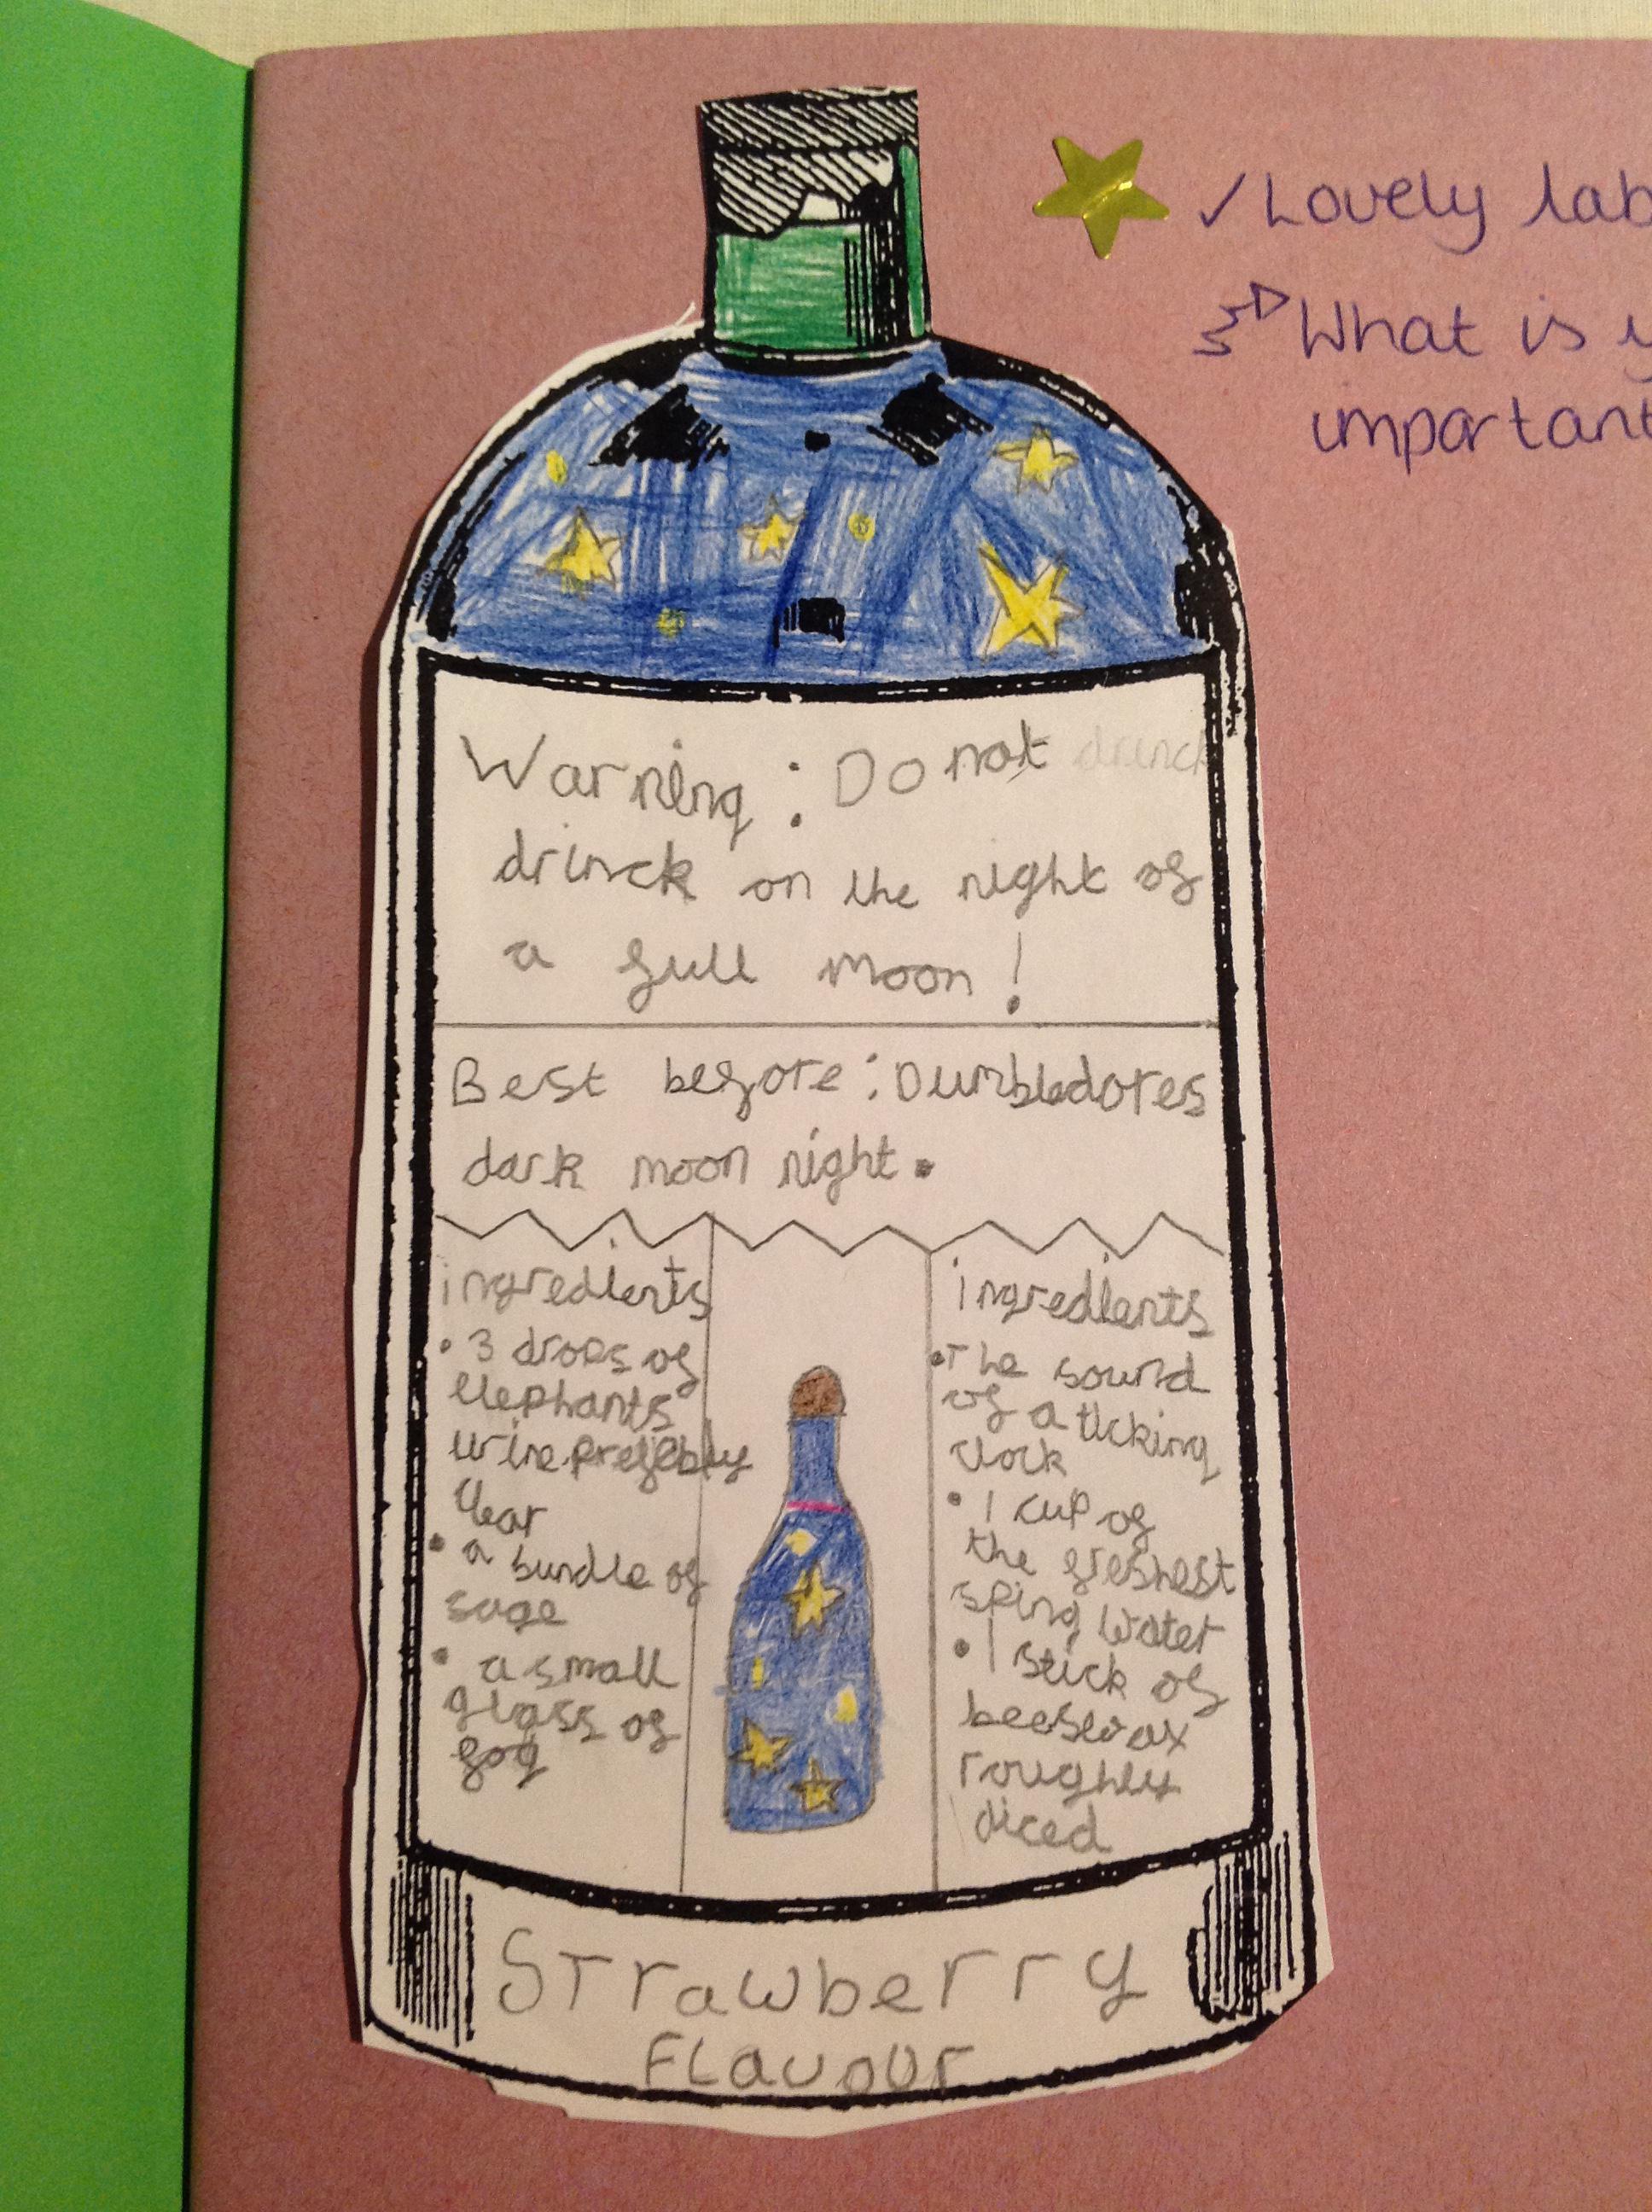 ✓ Lovely lab
What is y
important
Warning : Do not drinck
drinck on the night of
a full moon !
Best before : Dumbledores
dark moon night.
ingredients
• 3 drops of
elephants
urine prefebly
clear
• a bundle of
sage
• a small
glass of
fog
ingredients
• The sound
of a ticking
clock
• 1 cup of
the freshest
sping water
• 1 stick of
beeswax
roughly
diced
Strawberry
Flavour